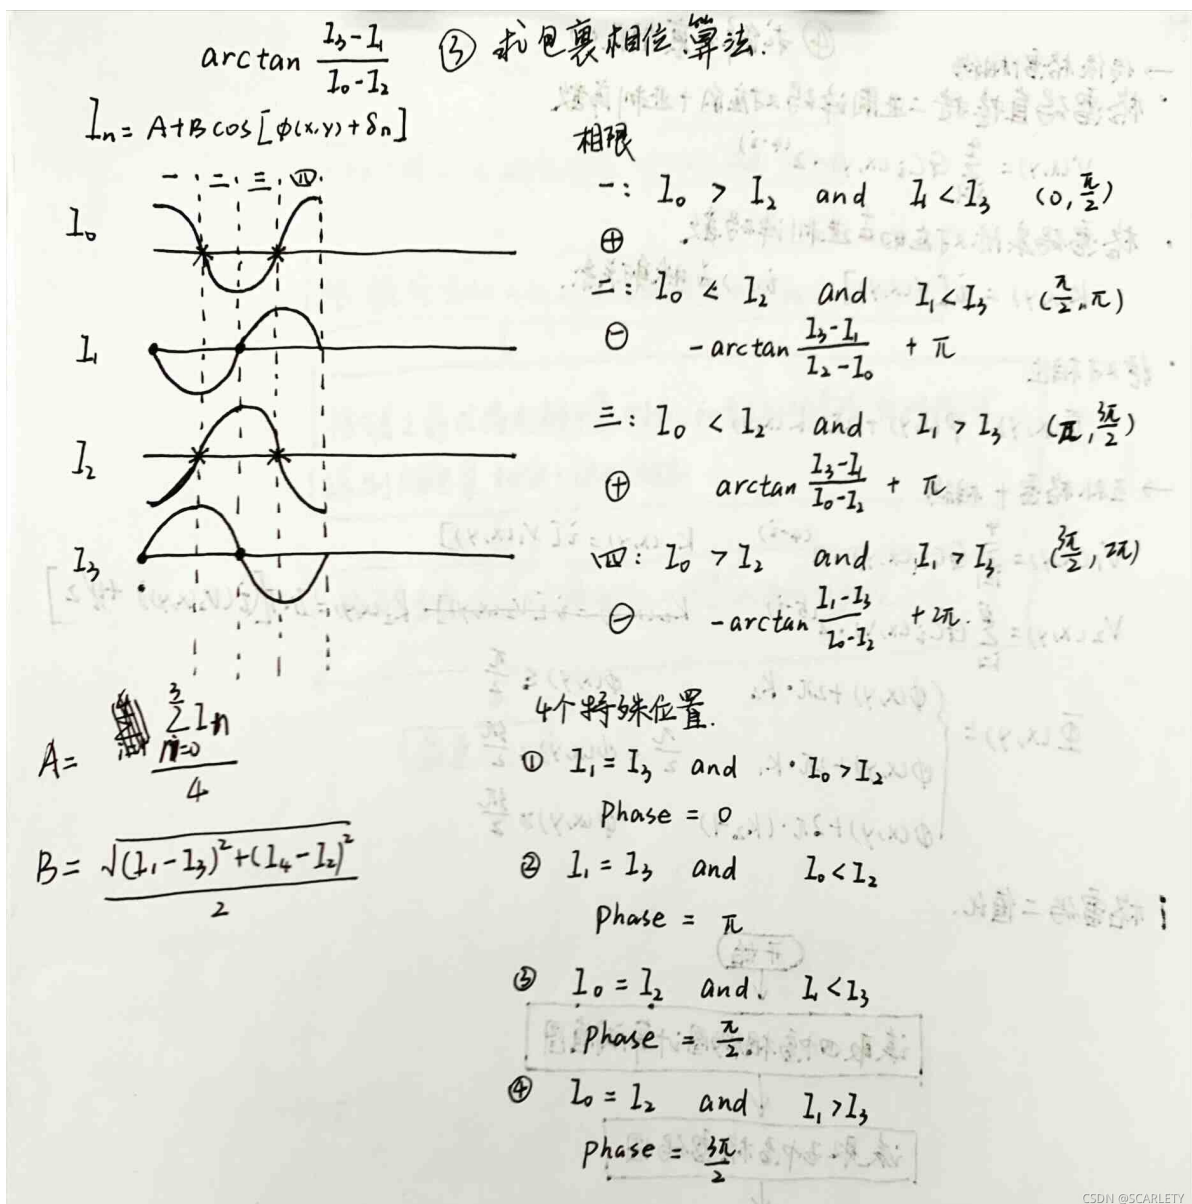 arctan (I₃-I₁)/(I₀-I₂) ③ 求包裹相位算法.
Iₙ = A+B cos[φ(x,y)+δₙ]
一 二 三 四
I₀
I₁
I₂
I₃
A= (∑ₙ₌₀³ Iₙ)/4
B= √((I₁-I₃)²+(I₄-I₂)²)/2
相限
一: I₀ > I₂ and I₁ < I₃ (0, π/2)
⊕
二: I₀ < I₂ and I₁ < I₃ (π/2, π)
⊖ -arctan (I₃-I₁)/(I₂-I₀) + π
三: I₀ < I₂ and I₁ > I₃ (π, 3π/2)
⊕ arctan (I₃-I₁)/(I₀-I₂) + π
四: I₀ > I₂ and I₁ > I₃ (3π/2, 2π)
⊖ -arctan (I₁-I₃)/(I₀-I₂) + 2π.
4个特殊位置.
① I₁ = I₃ and I₀ > I₂
Phase = 0
② I₁ = I₃ and I₀ < I₂
Phase = π
③ I₀ = I₂ and I₁ < I₃
Phase = π/2
④ I₀ = I₂ and I₁ > I₃
Phase = 3π/2
CSDN @SCARLETY